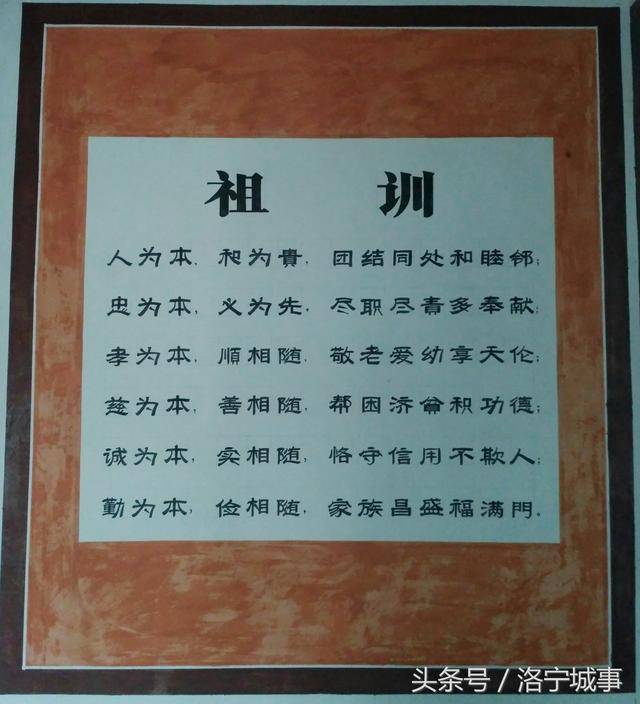 祖 训
人为本，和为貴，团结同处和睦邻；
忠为本，义为先，尽职尽责多奉献；
孝为本，順相随，敬老爱幼享天伦；
慈为本，善相随，帮困济贫积功德；
诚为本，实相随，恪守信用不欺人；
勤为本，俭相随，家族昌盛福满門。
头条号 / 洛宁城事